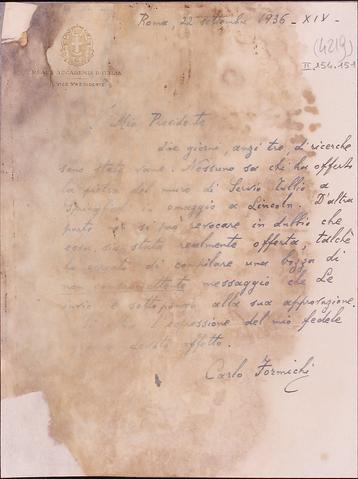 Roma, 22 settembre 1936 - XIV -
(4219)
II 254.151
REALE ACCADEMIA D'ITALIA
VICE PRESIDENTE
Mio Presidente
due giorni, anzi tre, di ricerche
sono state vane. Nessuno sa chi ha offerto
la pietra del muro di Servio Tullio a
Springfield in omaggio a Lincoln. D'altra
parte si può revocare in dubbio che
essa sia stata realmente offerta, talchè
di compilare una bozza di
non messaggio che Le
invio e sottopongo alla sua approvazione.
espressione del mio fedele
devoto affetto.
Carlo Formichi